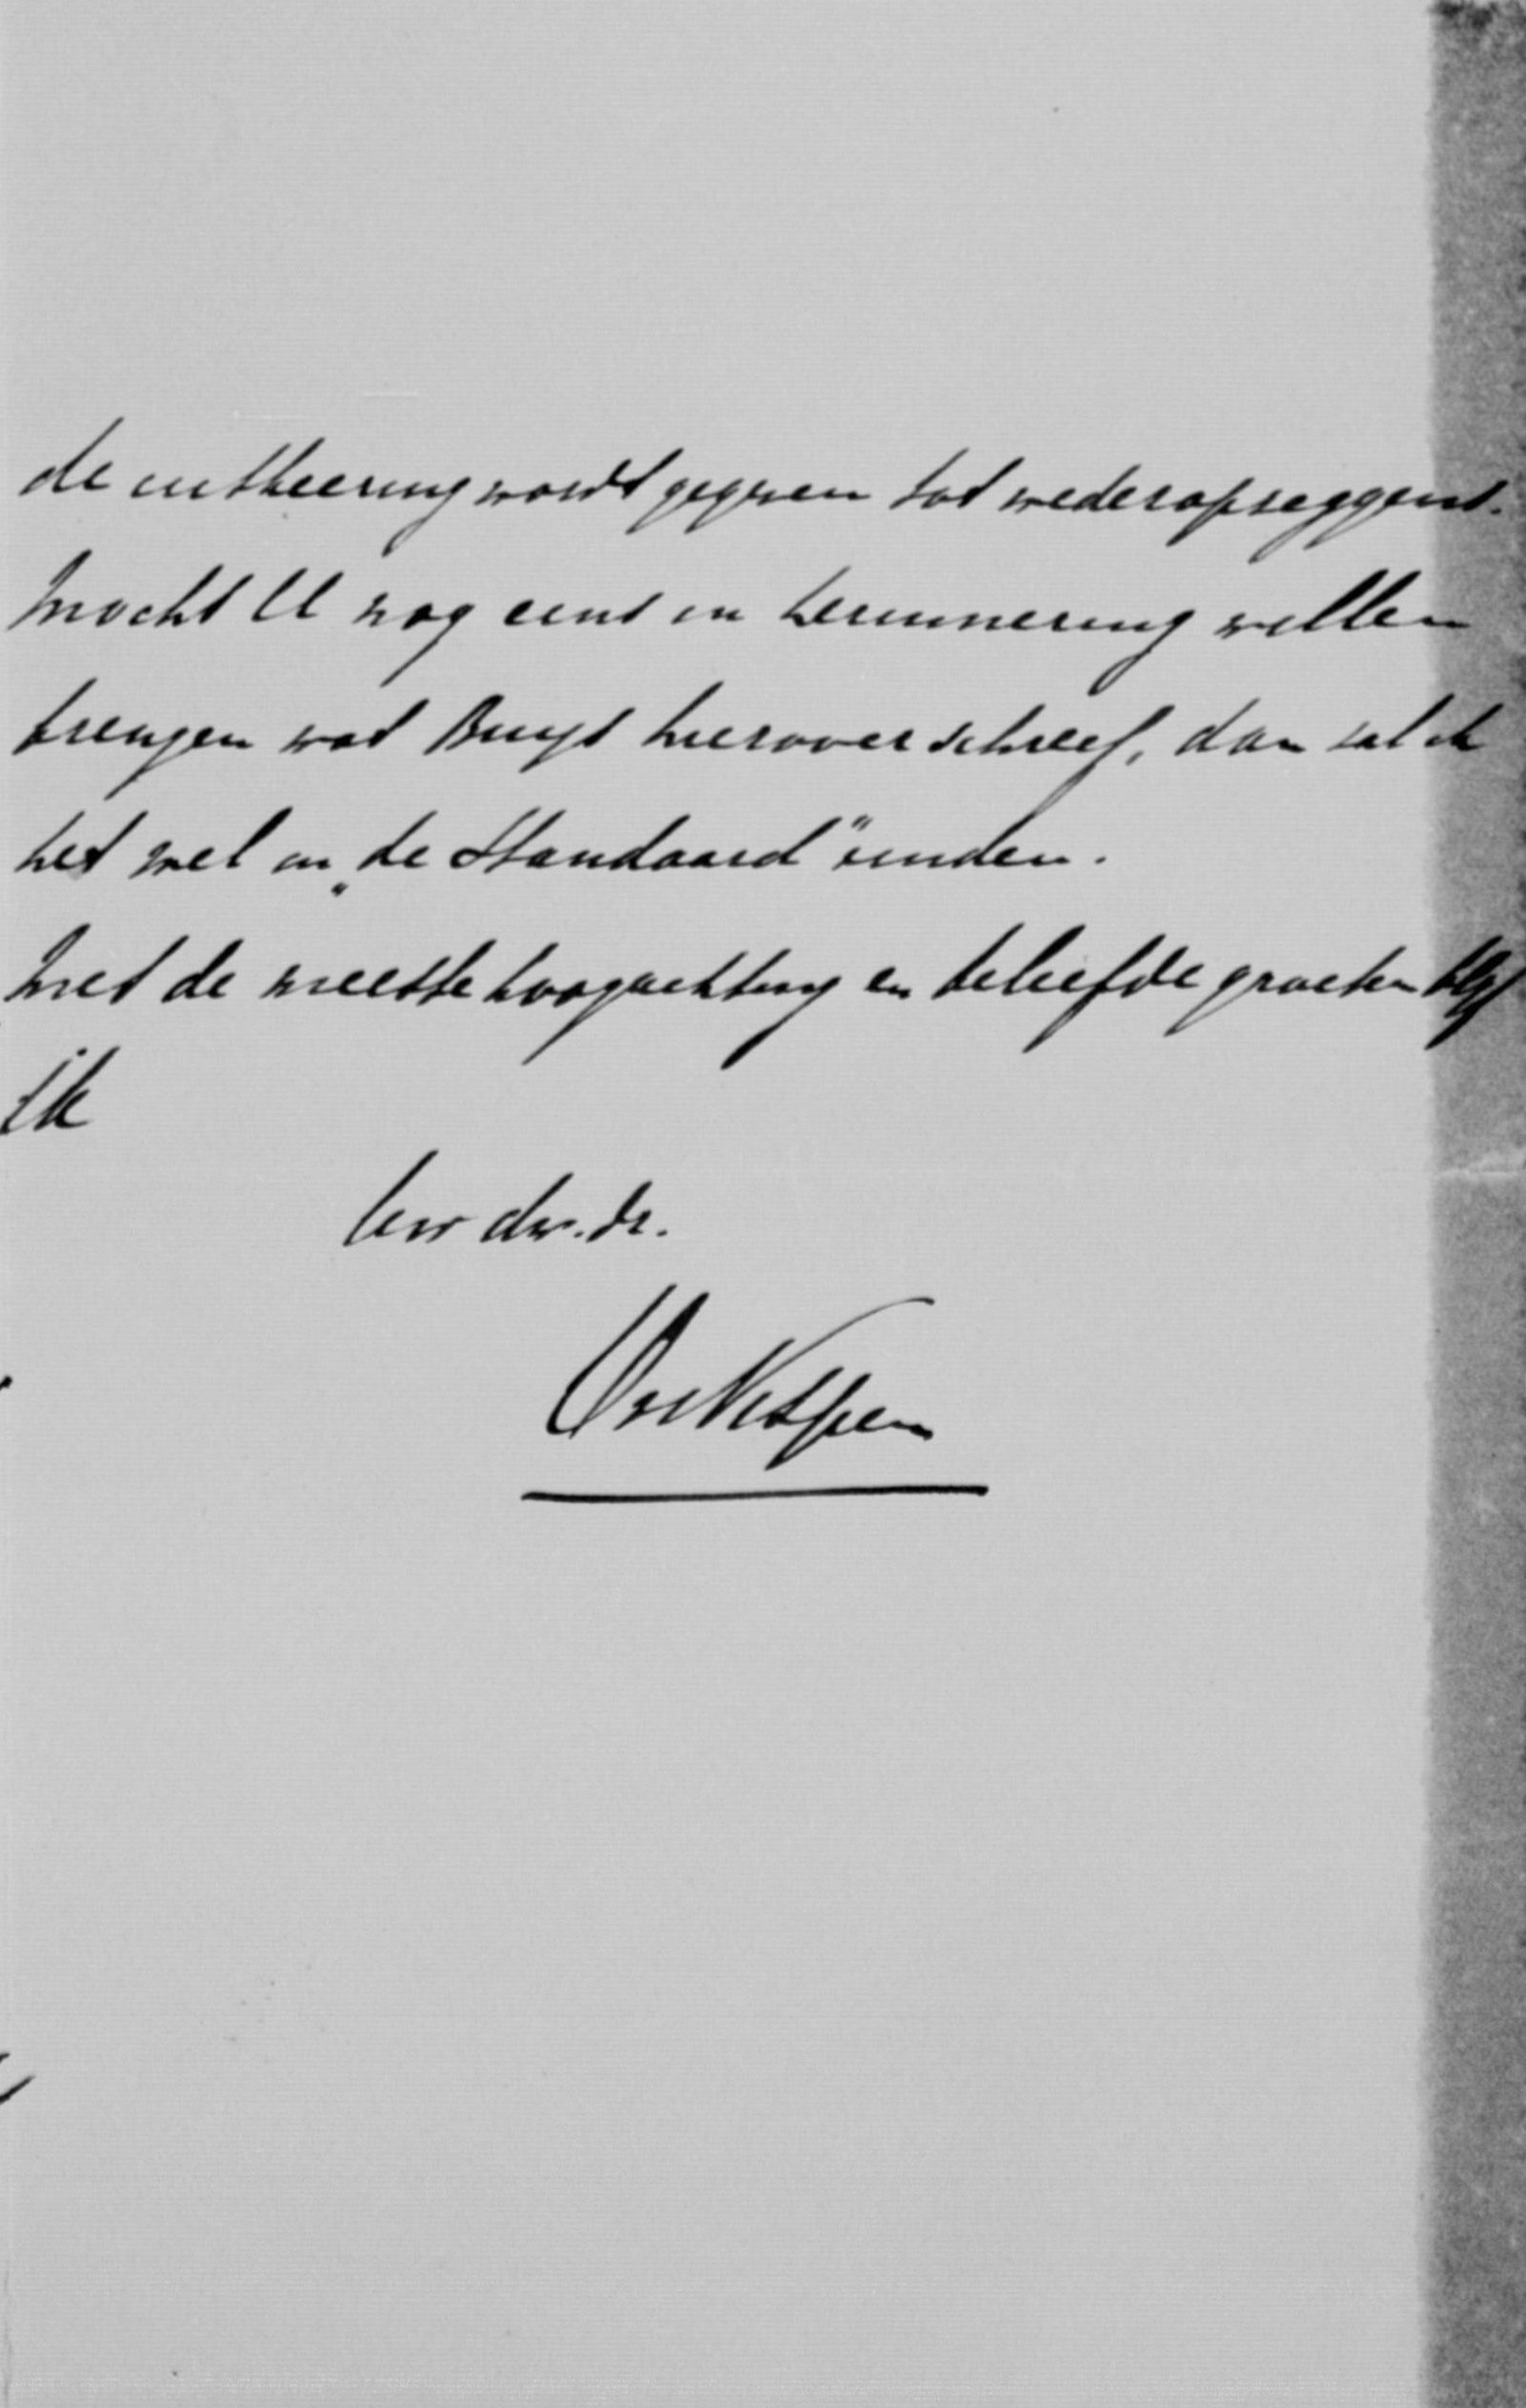 de uitkeering wordt gegeven tot wederopseggens.
Mocht U nog eens in herinnering willen
brengen wat Buys hierover schreef, dan sal ik
het wel in „de Standaard" vinden.
Met de meeste hoogachting en beleefde groeten blyf
ik
Uw dw. dr.